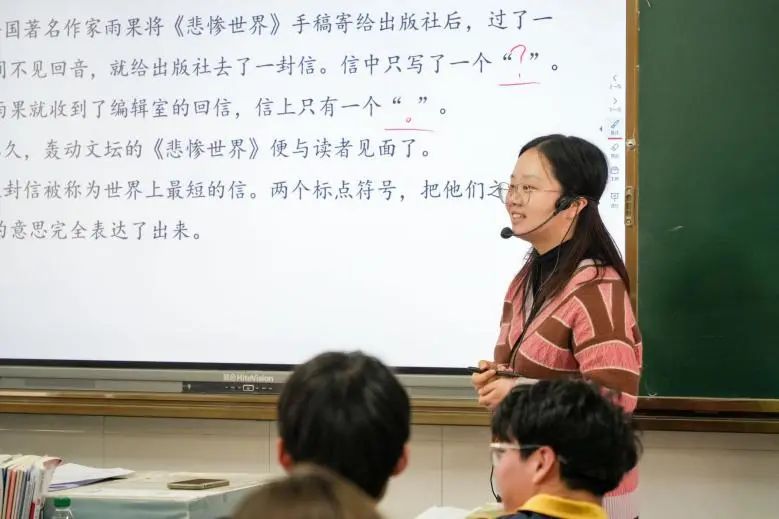 国著名作家雨果将《悲惨世界》手稿寄给出版社后，过了一
间不见回音，就给出版社去了一封信。信中只写了一个“？”。
雨果就收到了编辑室的回信，信上只有一个“。”。
久，轰动文坛的《悲惨世界》便与读者见面了。
封信被称为世界上最短的信。两个标点符号，把他们之
的意思完全表达了出来。
HiteVision